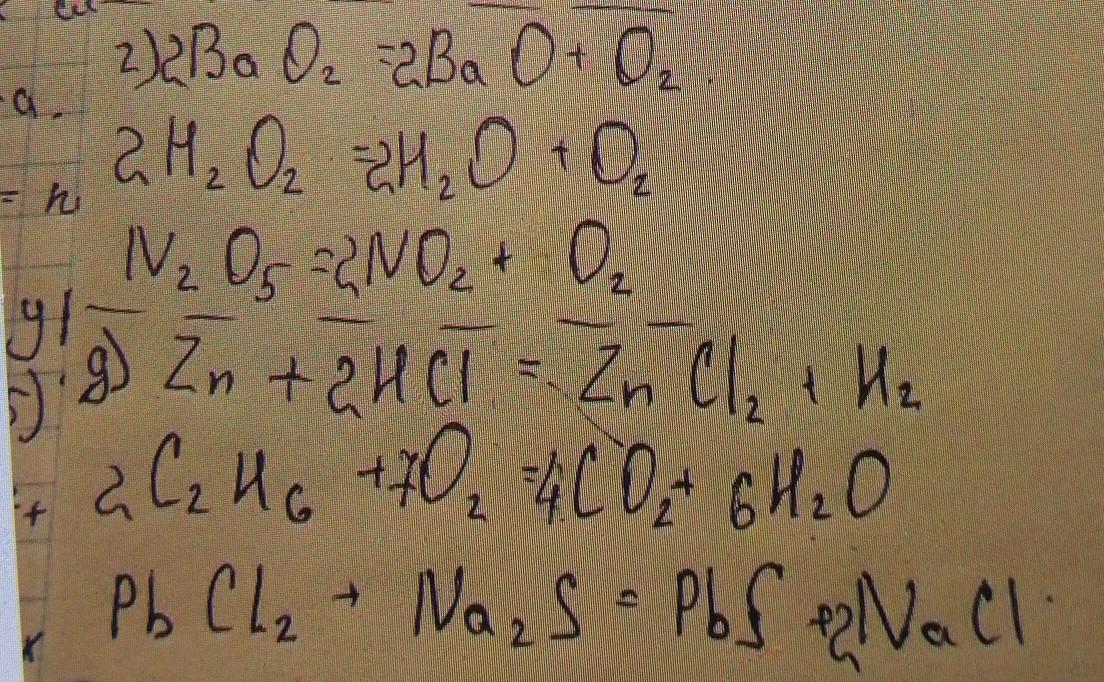 г) 2BaO₂ = 2BaO + O₂
2H₂O₂ = 2H₂O + O₂
N₂O₅ = 2NO₂ + O₂
д) Zn + 2HCl = ZnCl₂ + H₂
2C₂H₆ + 7O₂ = 4CO₂ + 6H₂O
PbCl₂ + Na₂S = PbS + 2NaCl